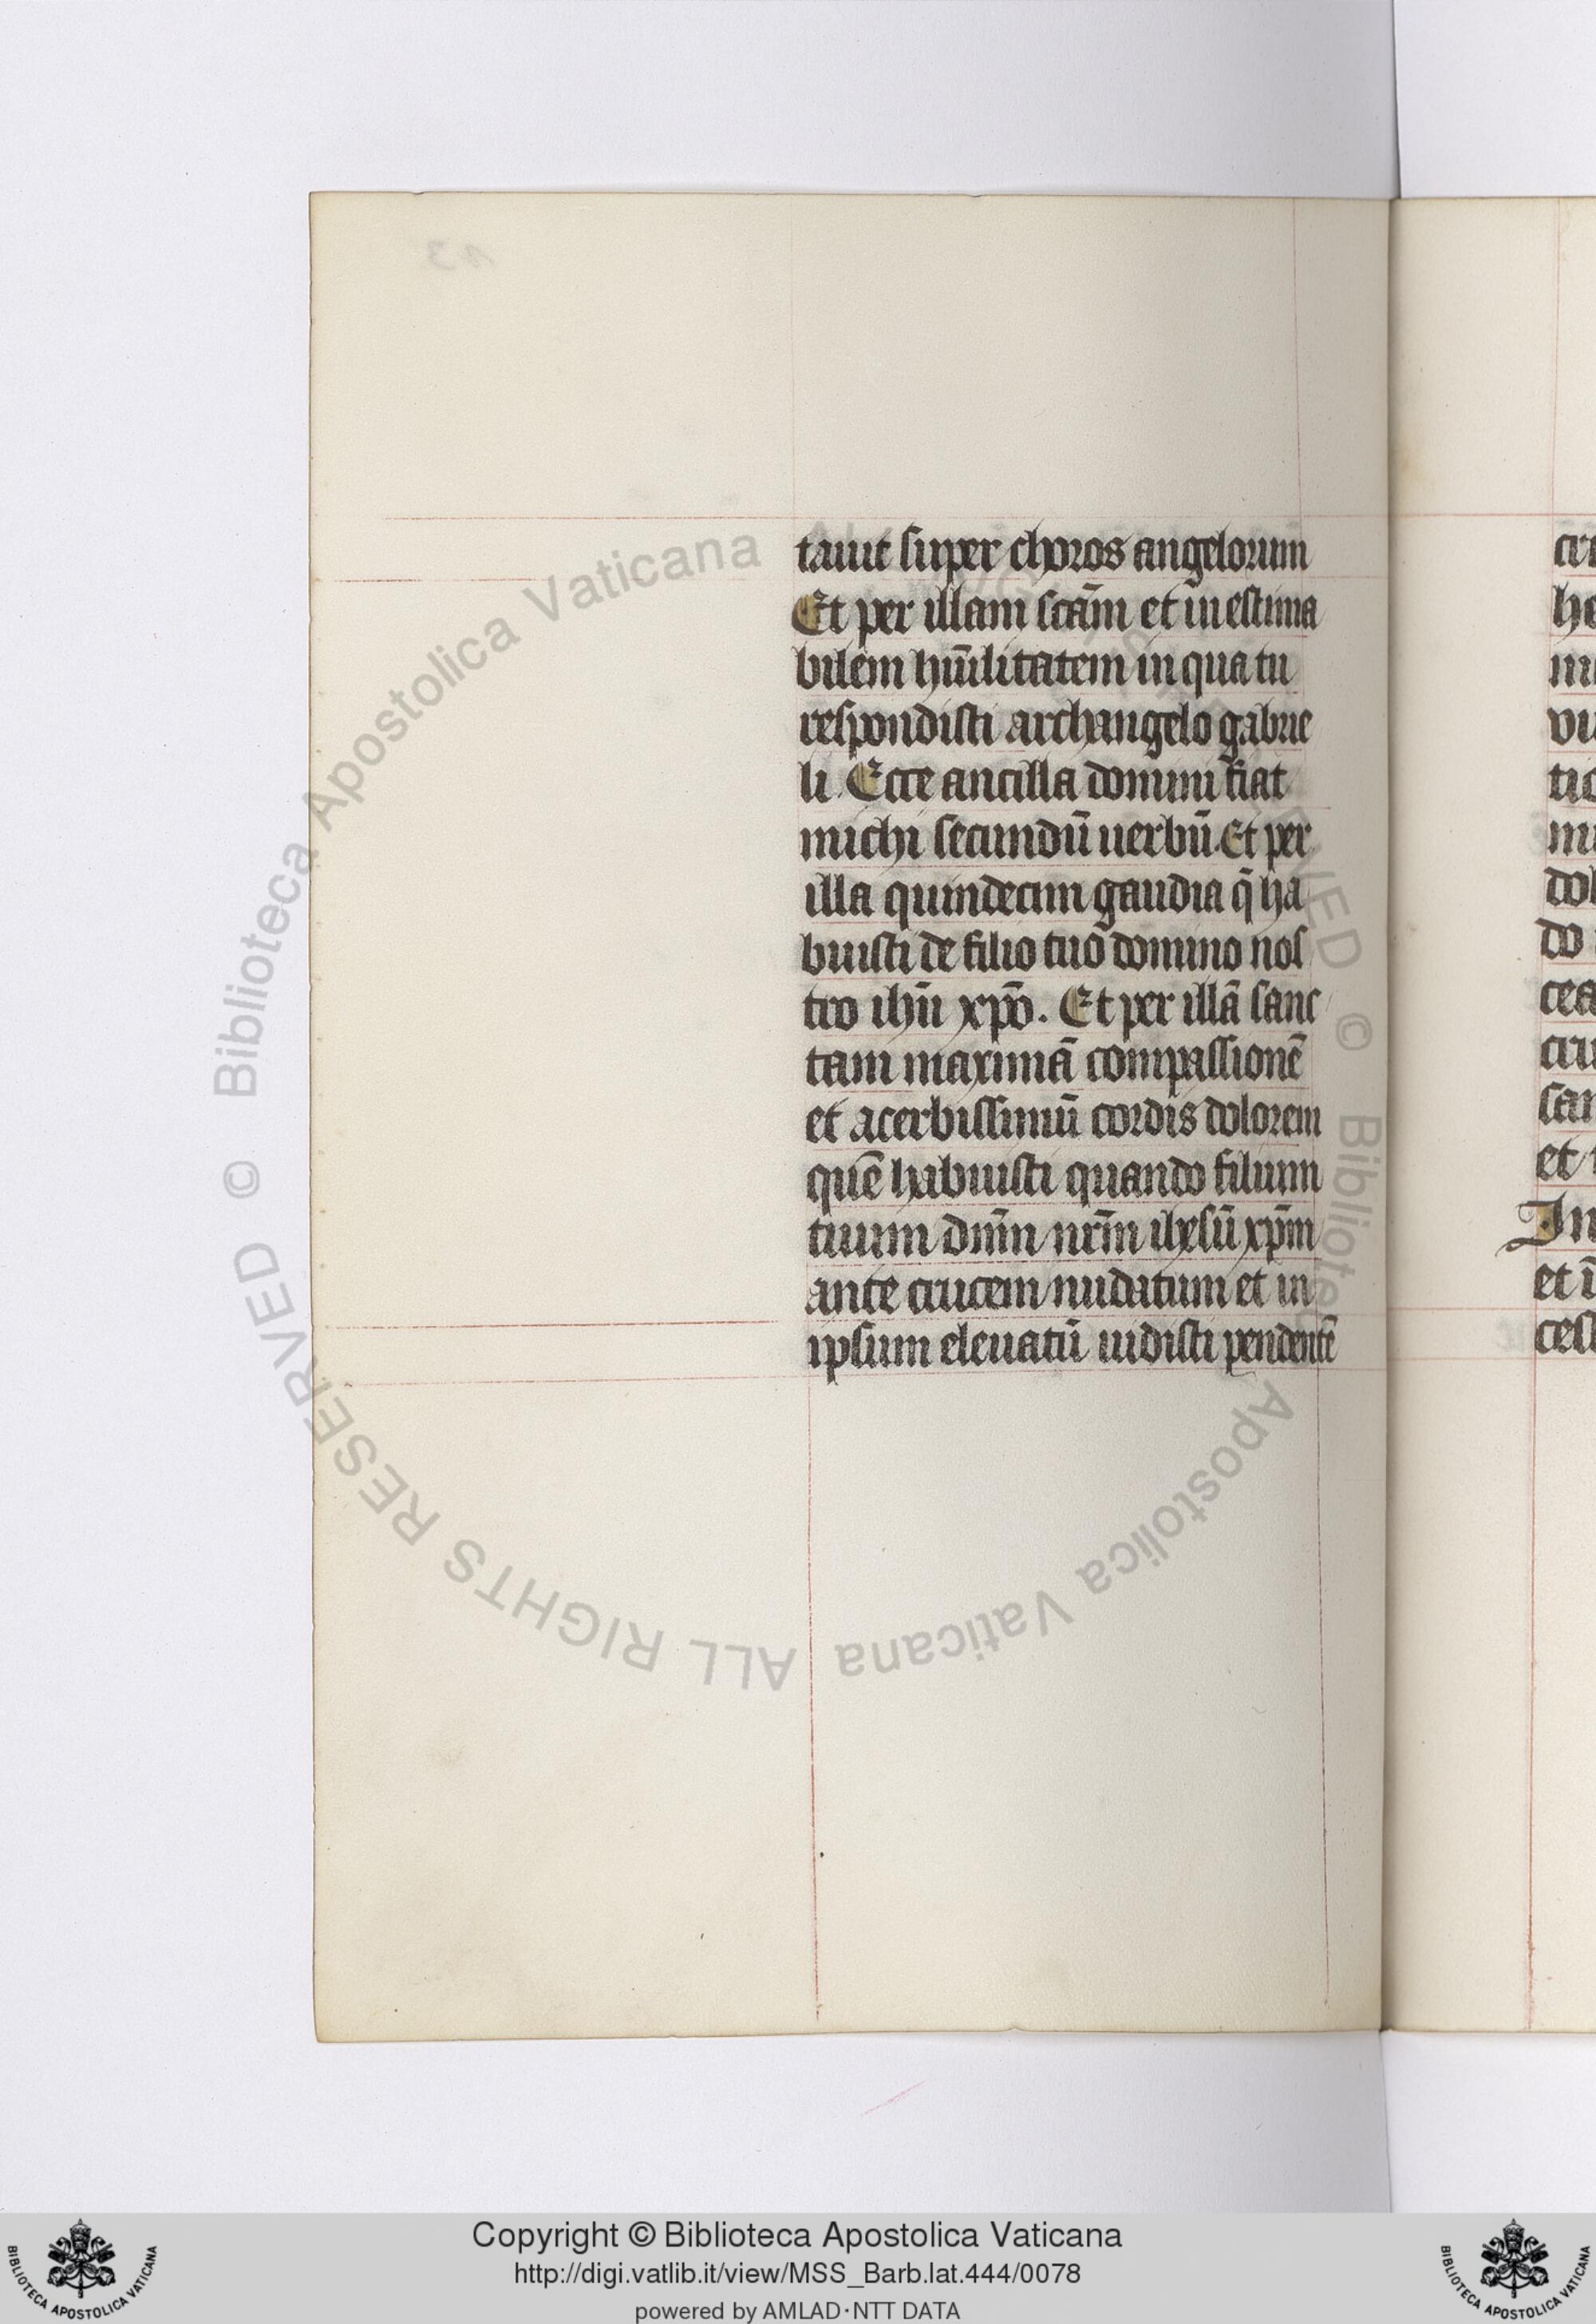 tauit super choros angelorum
Et per illam scām et inestima
bilem hūilitatem in qua tu
respondisti archangelo gabrie
li. Ecce ancilla domini fiat
michi secundū uerbū. Et per
illa quindecim gaudia q̄ ha
buisti de filio tuo domino nos
tro ihū xp̄o. Et per illā sanc
tam maximā compassionē
et acerbissimū cordis dolorem
quē habuisti quando filium
tuum dn̄m nr̄m ihesū xp̄m
ante crucem nudatum et in
ipsum eleuatū uidisti pendentē
13
In
et
Biblioteca Apostolica Vaticana
ALL RIGHTS RESERVED ©
Biblioteca Apostolica Vaticana
Copyright © Biblioteca Apostolica Vaticana
http://digi.vatlib.it/view/MSS_Barb.lat.444/0078
powered by AMLAD·NTT DATA
BIBLIOTECA APOSTOLICA VATICANA
BIBLIOTECA APOSTOLICA VATICANA